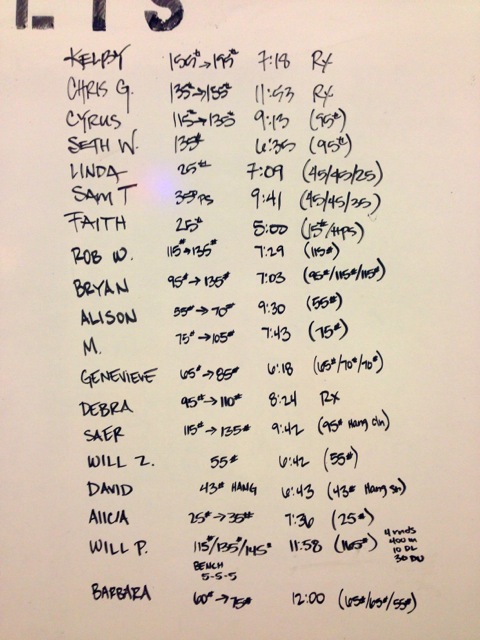 ETS
KELBY 155# → 195# 7:18 Rx
CHRIS G. 135 → 155# 11:53 Rx
CYRUS 115# → 135# 9:13 (95#)
SETH W. 135# 6:35 (95#)
LINDA 25# 7:09 (45/45/25)
SAM T 35# PS 9:41 (45/45/35)
FAITH 25# 5:00 (15#/HPS)
ROB W. 115# → 135# 7:29 (115#)
BRYAN 95# → 135# 7:03 (95#/115#/115#)
ALISON 55# → 70# 9:30 (55#)
M. 75# → 105# 7:43 (75#)
GENEVIEVE 65# → 85# 6:18 (65#/70#/70#)
DEBRA 95# → 110# 8:24 Rx
SAER 115# → 135# 9:42 (95# Hang cln)
WILL Z. 55# 6:42 (55#)
DAVID 43# HANG 6:43 (43# Hang Sn)
AlICIA 25# → 35# 7:36 (25#)
WILL P. 115/135#/145# 11:58 (165#) 4 rnds
400 m
10 DL
30 DU
BENCH
5-5-5
BARBARA 60# → 75# 12:00 (65#/65#/55#)